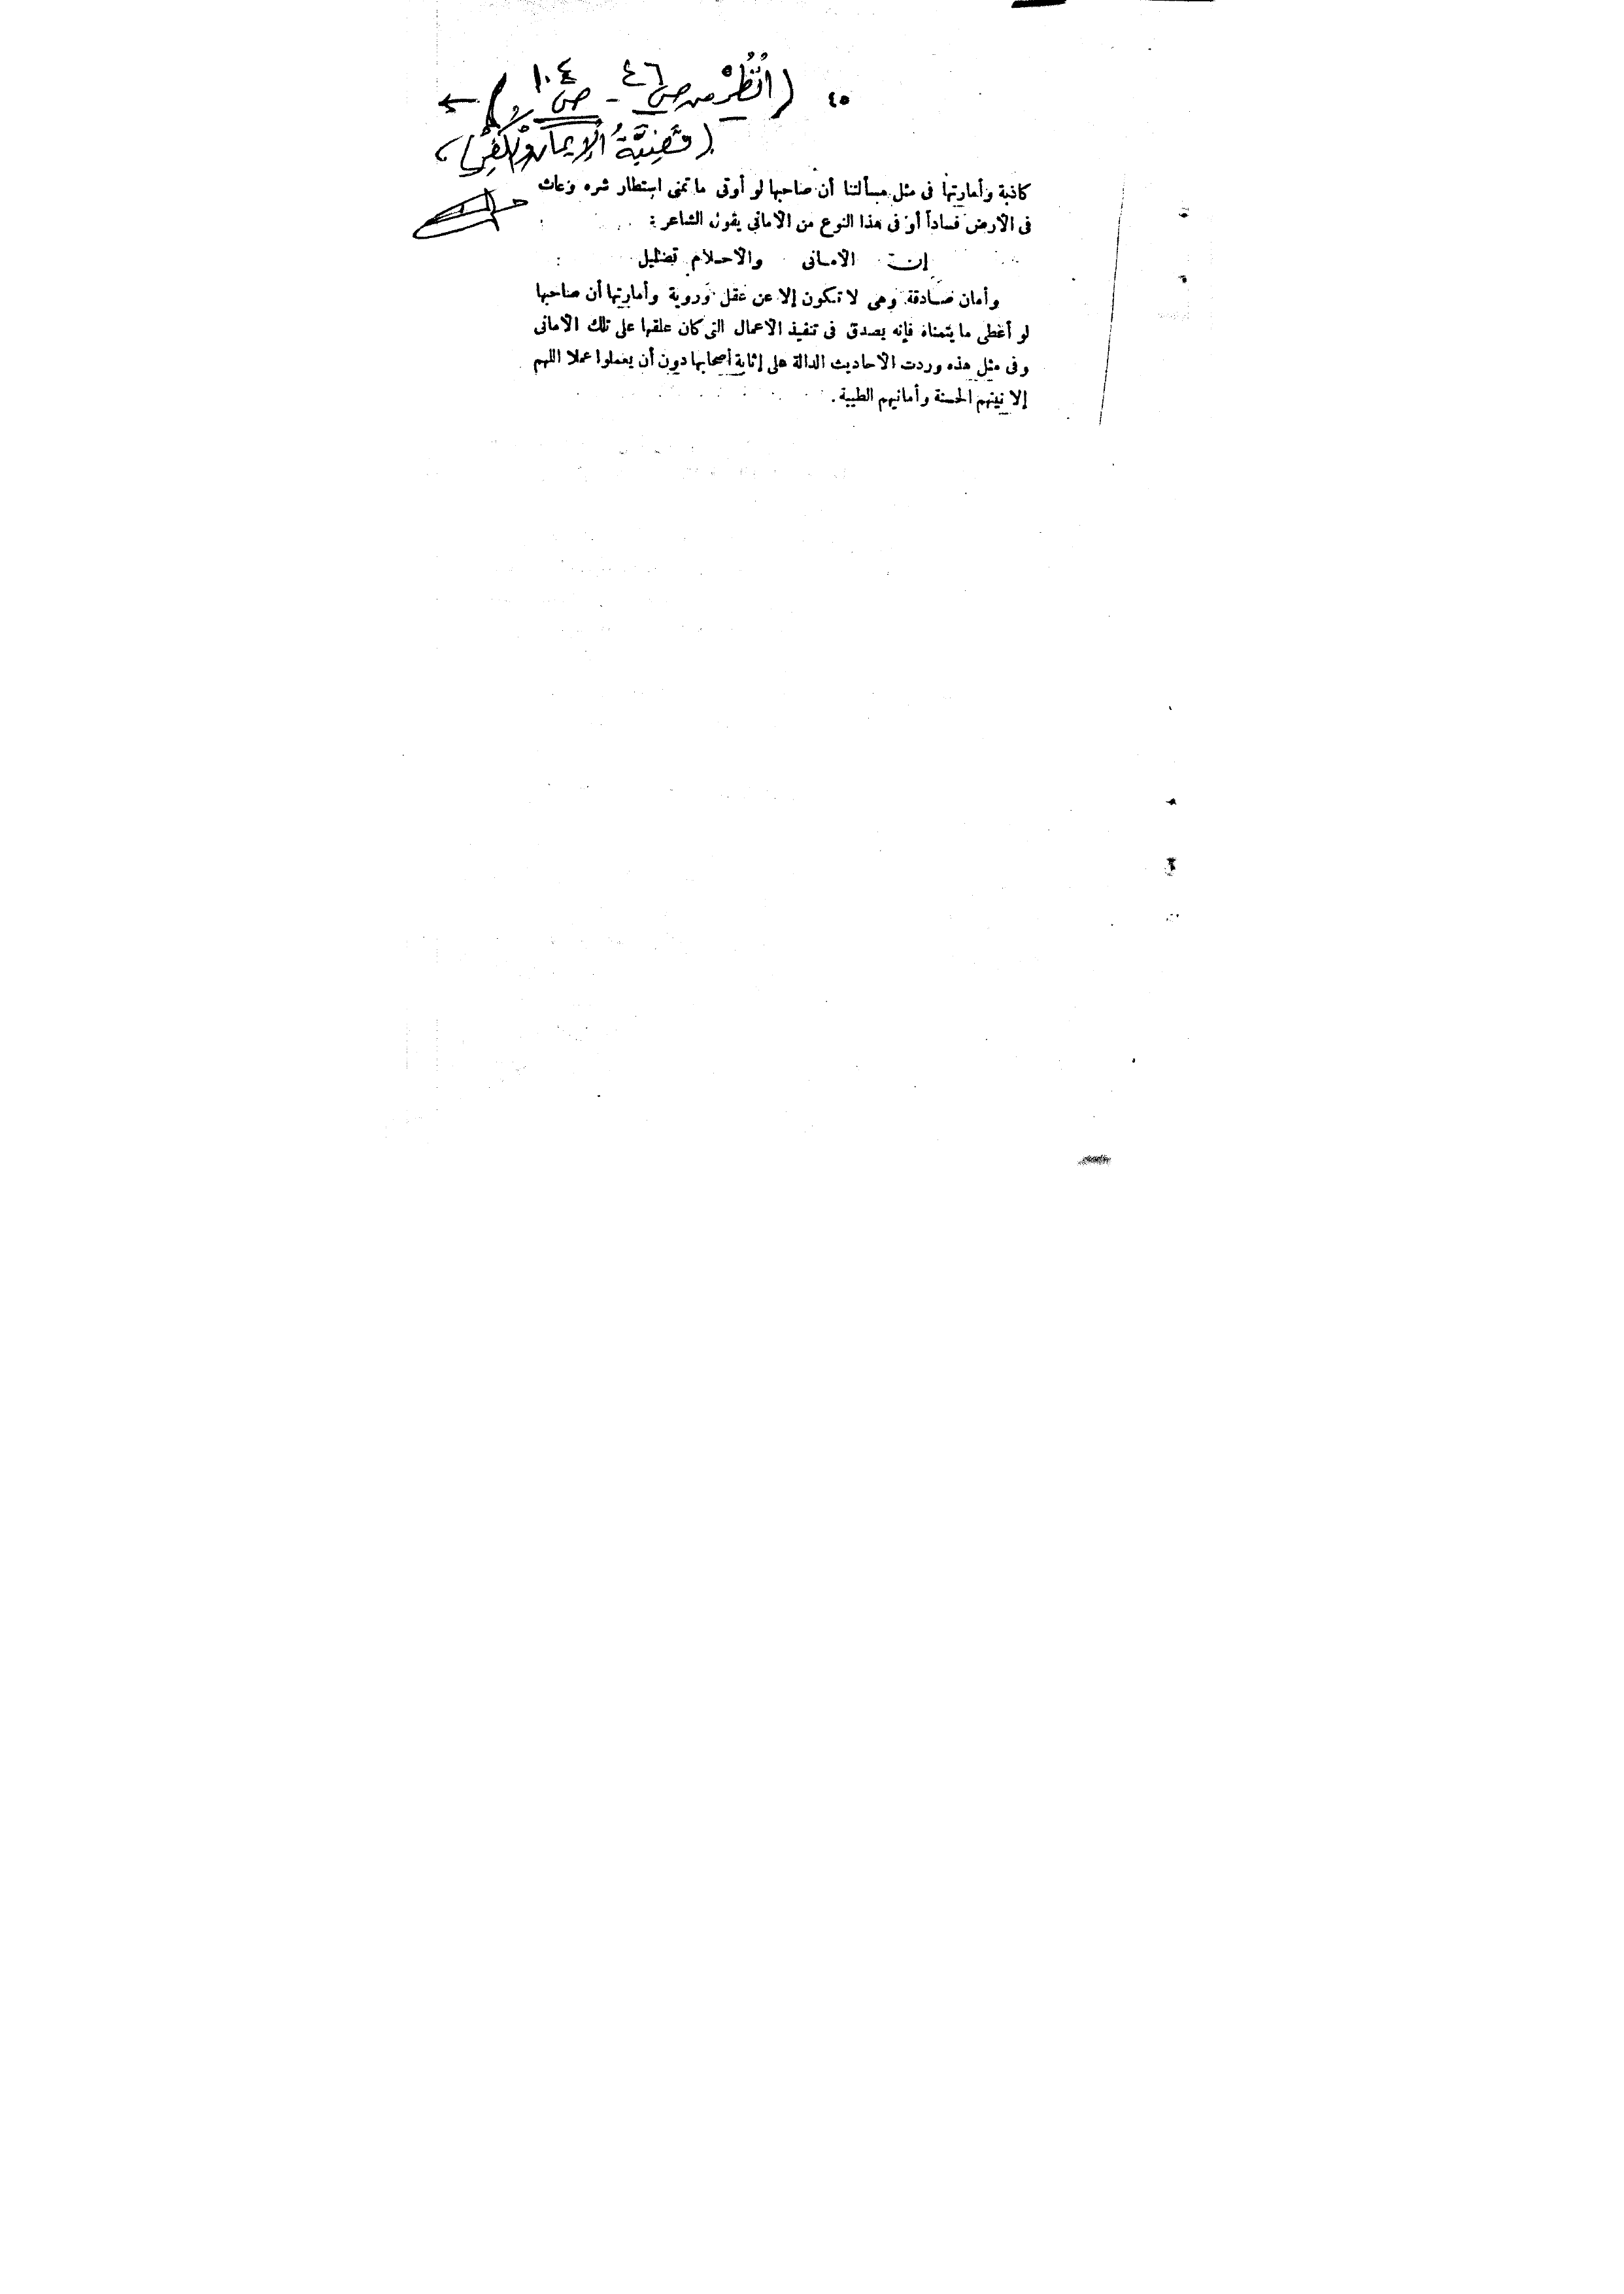 ٤٥ (اُنْظُرْ من ص ٤٦ - ص ١٠٤)
(قَضِيَّةُ الإيمان والكفر)
كاذبة وأمارتها فى مثل مسألتنا أن صاحبها لو أوتى ما تمنى استطار شره وعاث
فى الأرض فساداً أو فى هذا النوع من الأمانى يقول الشاعر :
إن الأمانى والأحلام تضليل
وأمان صادقة وهى لا تكون إلا عن عقل وروية وأمارتها أن صاحبها
لو أعطى ما يتمناه فإنه يصدق فى تنفيذ الأعمال التى كان علقها على تلك الأمانى
وفى مثل هذه وردت الأحاديث الدالة على إثابة أصحابها دون أن يعملوا عملا اللهم
إلا نيتهم الحسنة وأمانيهم الطيبة .